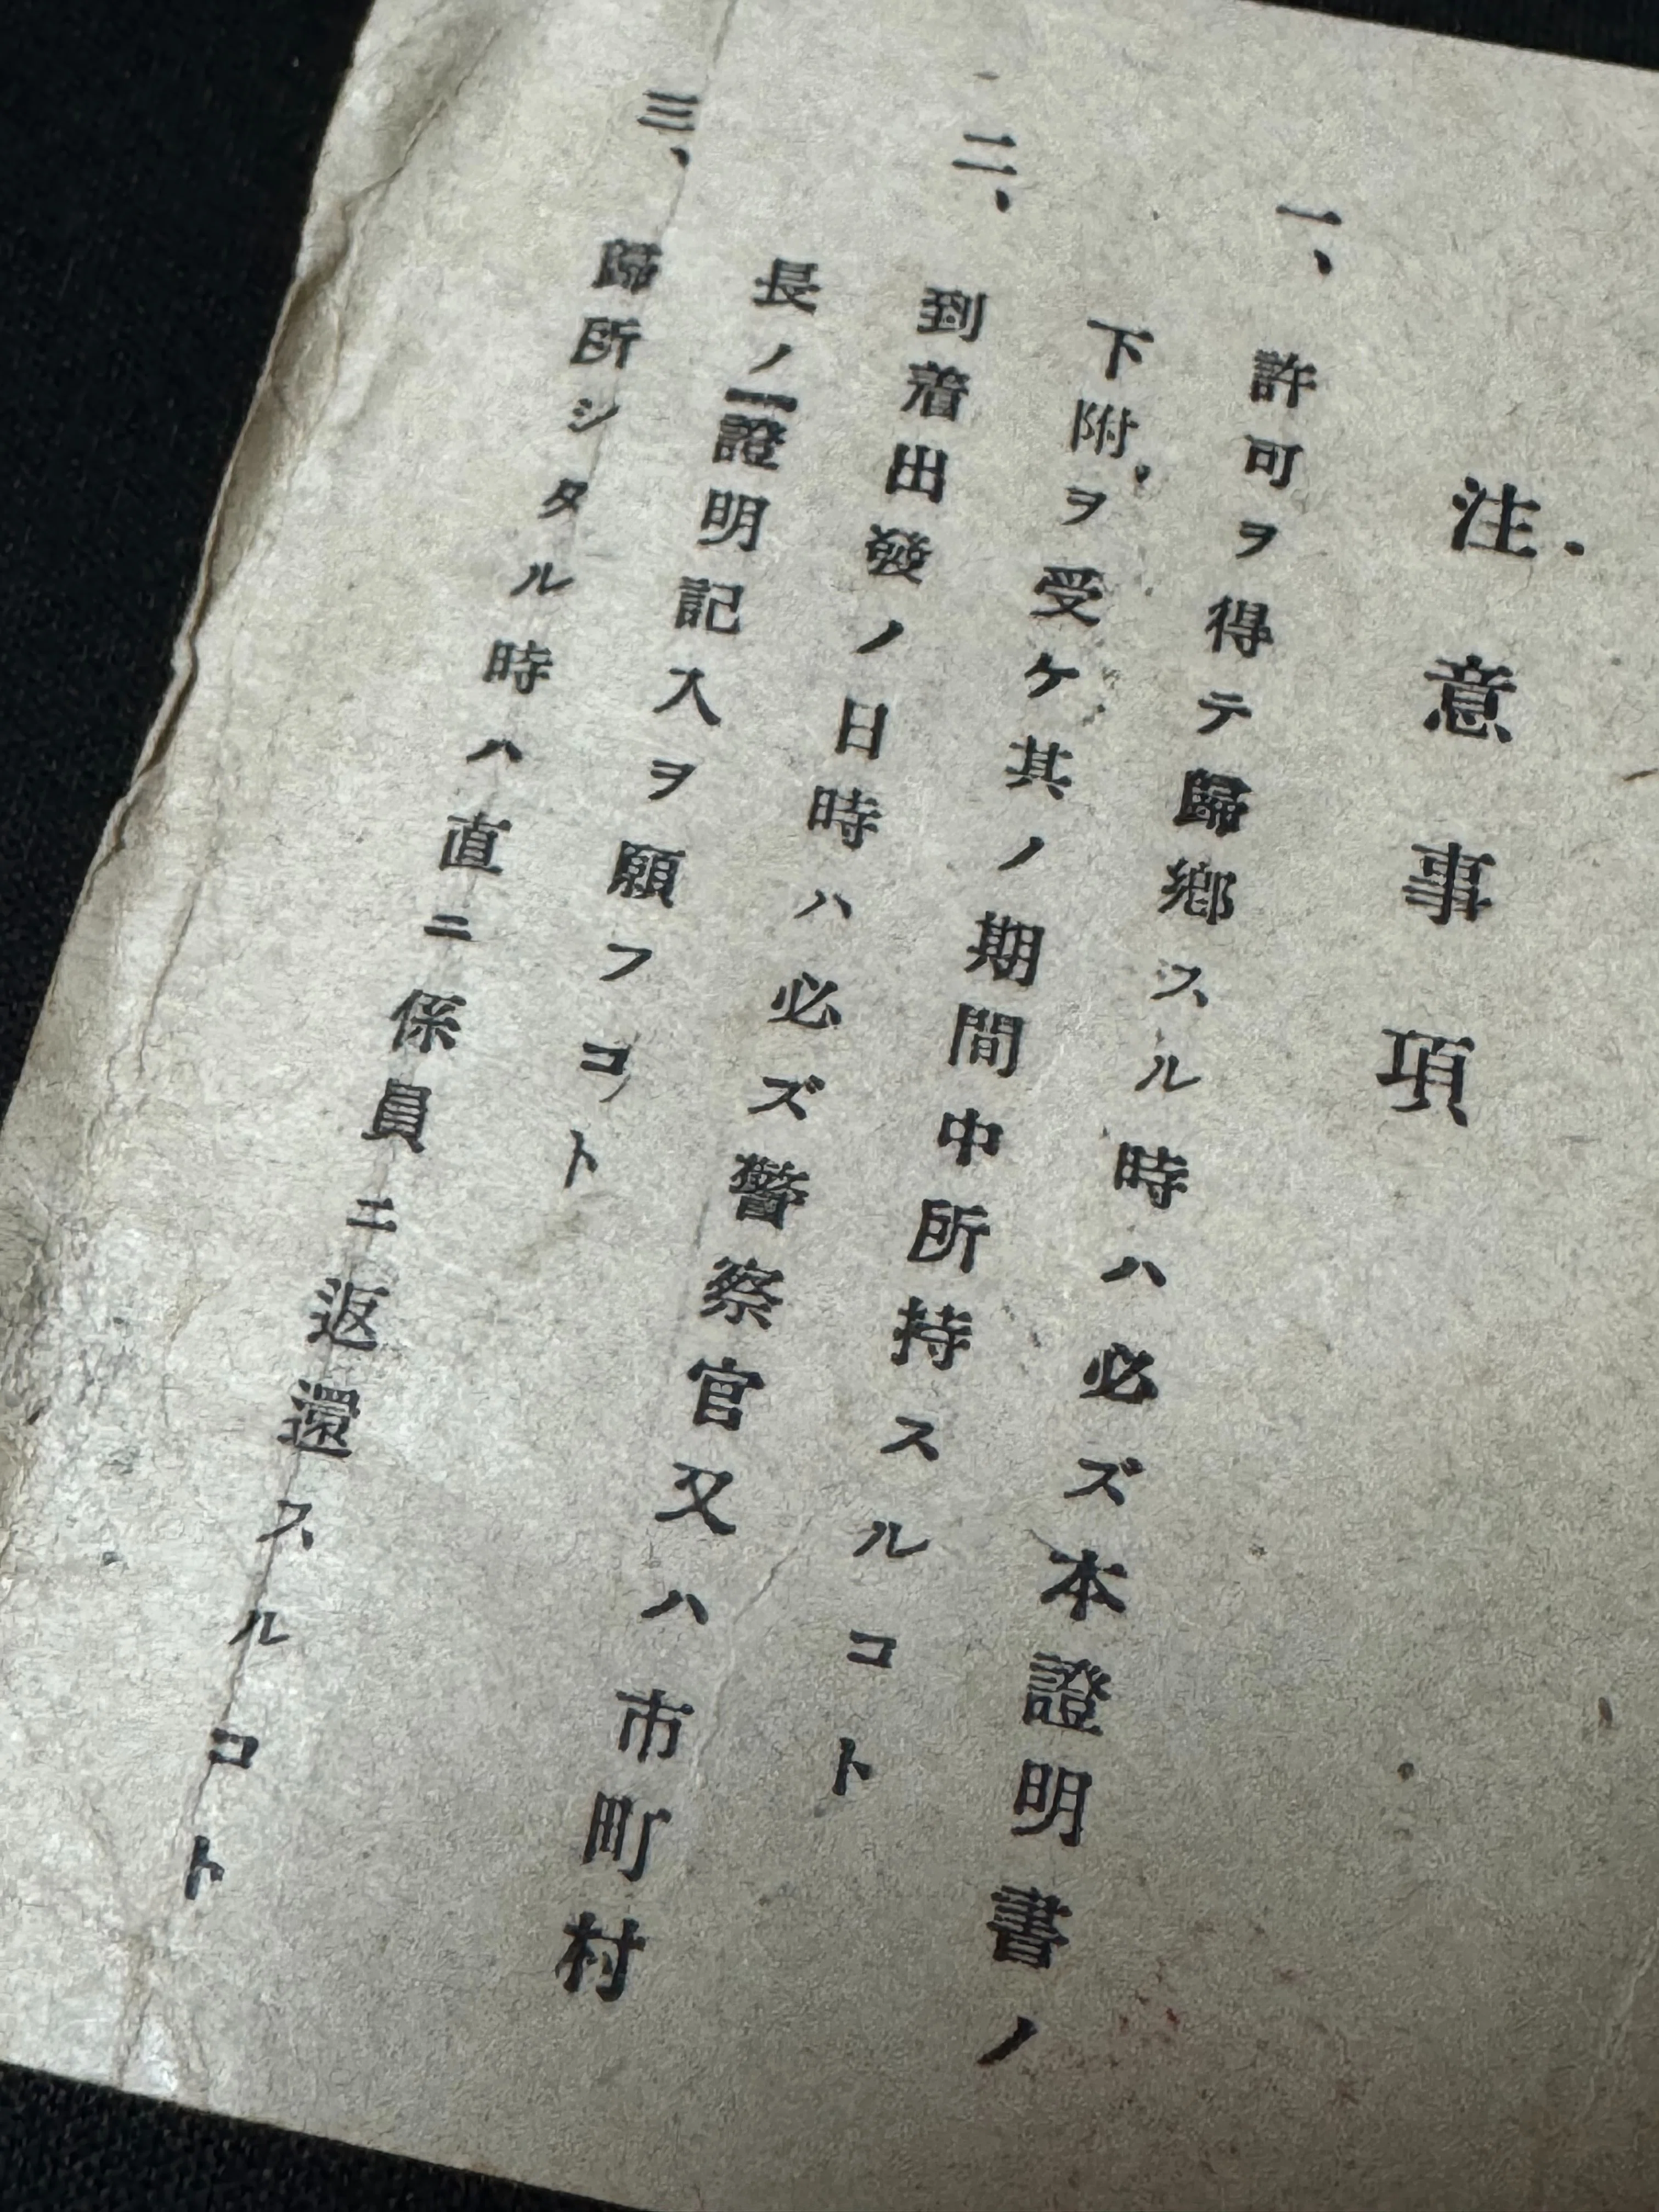 注意事項
一、許可ヲ得テ歸鄕スル時ハ必ズ本證明書ノ
下附ヲ受ケ其ノ期間中所持スルコト
二、到着出發ノ日時ハ必ズ警察官又ハ市町村
長ノ證明記入ヲ願フコト
三、歸所シタル時ハ直ニ係員ニ返還スルコト